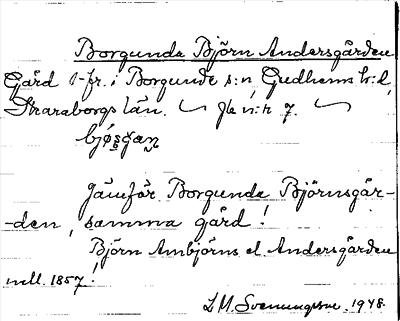 Borgunda Björn Andersgården
Gård 1 fr. i Borgunda s:n, Gudhems h:d,
Skaraborgs län. ~ Jb n:r 7. ~
bjö̱ṣgaɳ
Jämför Borgunda Björnsgår-
-den, samma gård!
Björn Ambjörns el. Andersgården
mell. 1857!
L. M. Svenungsson. 1948.